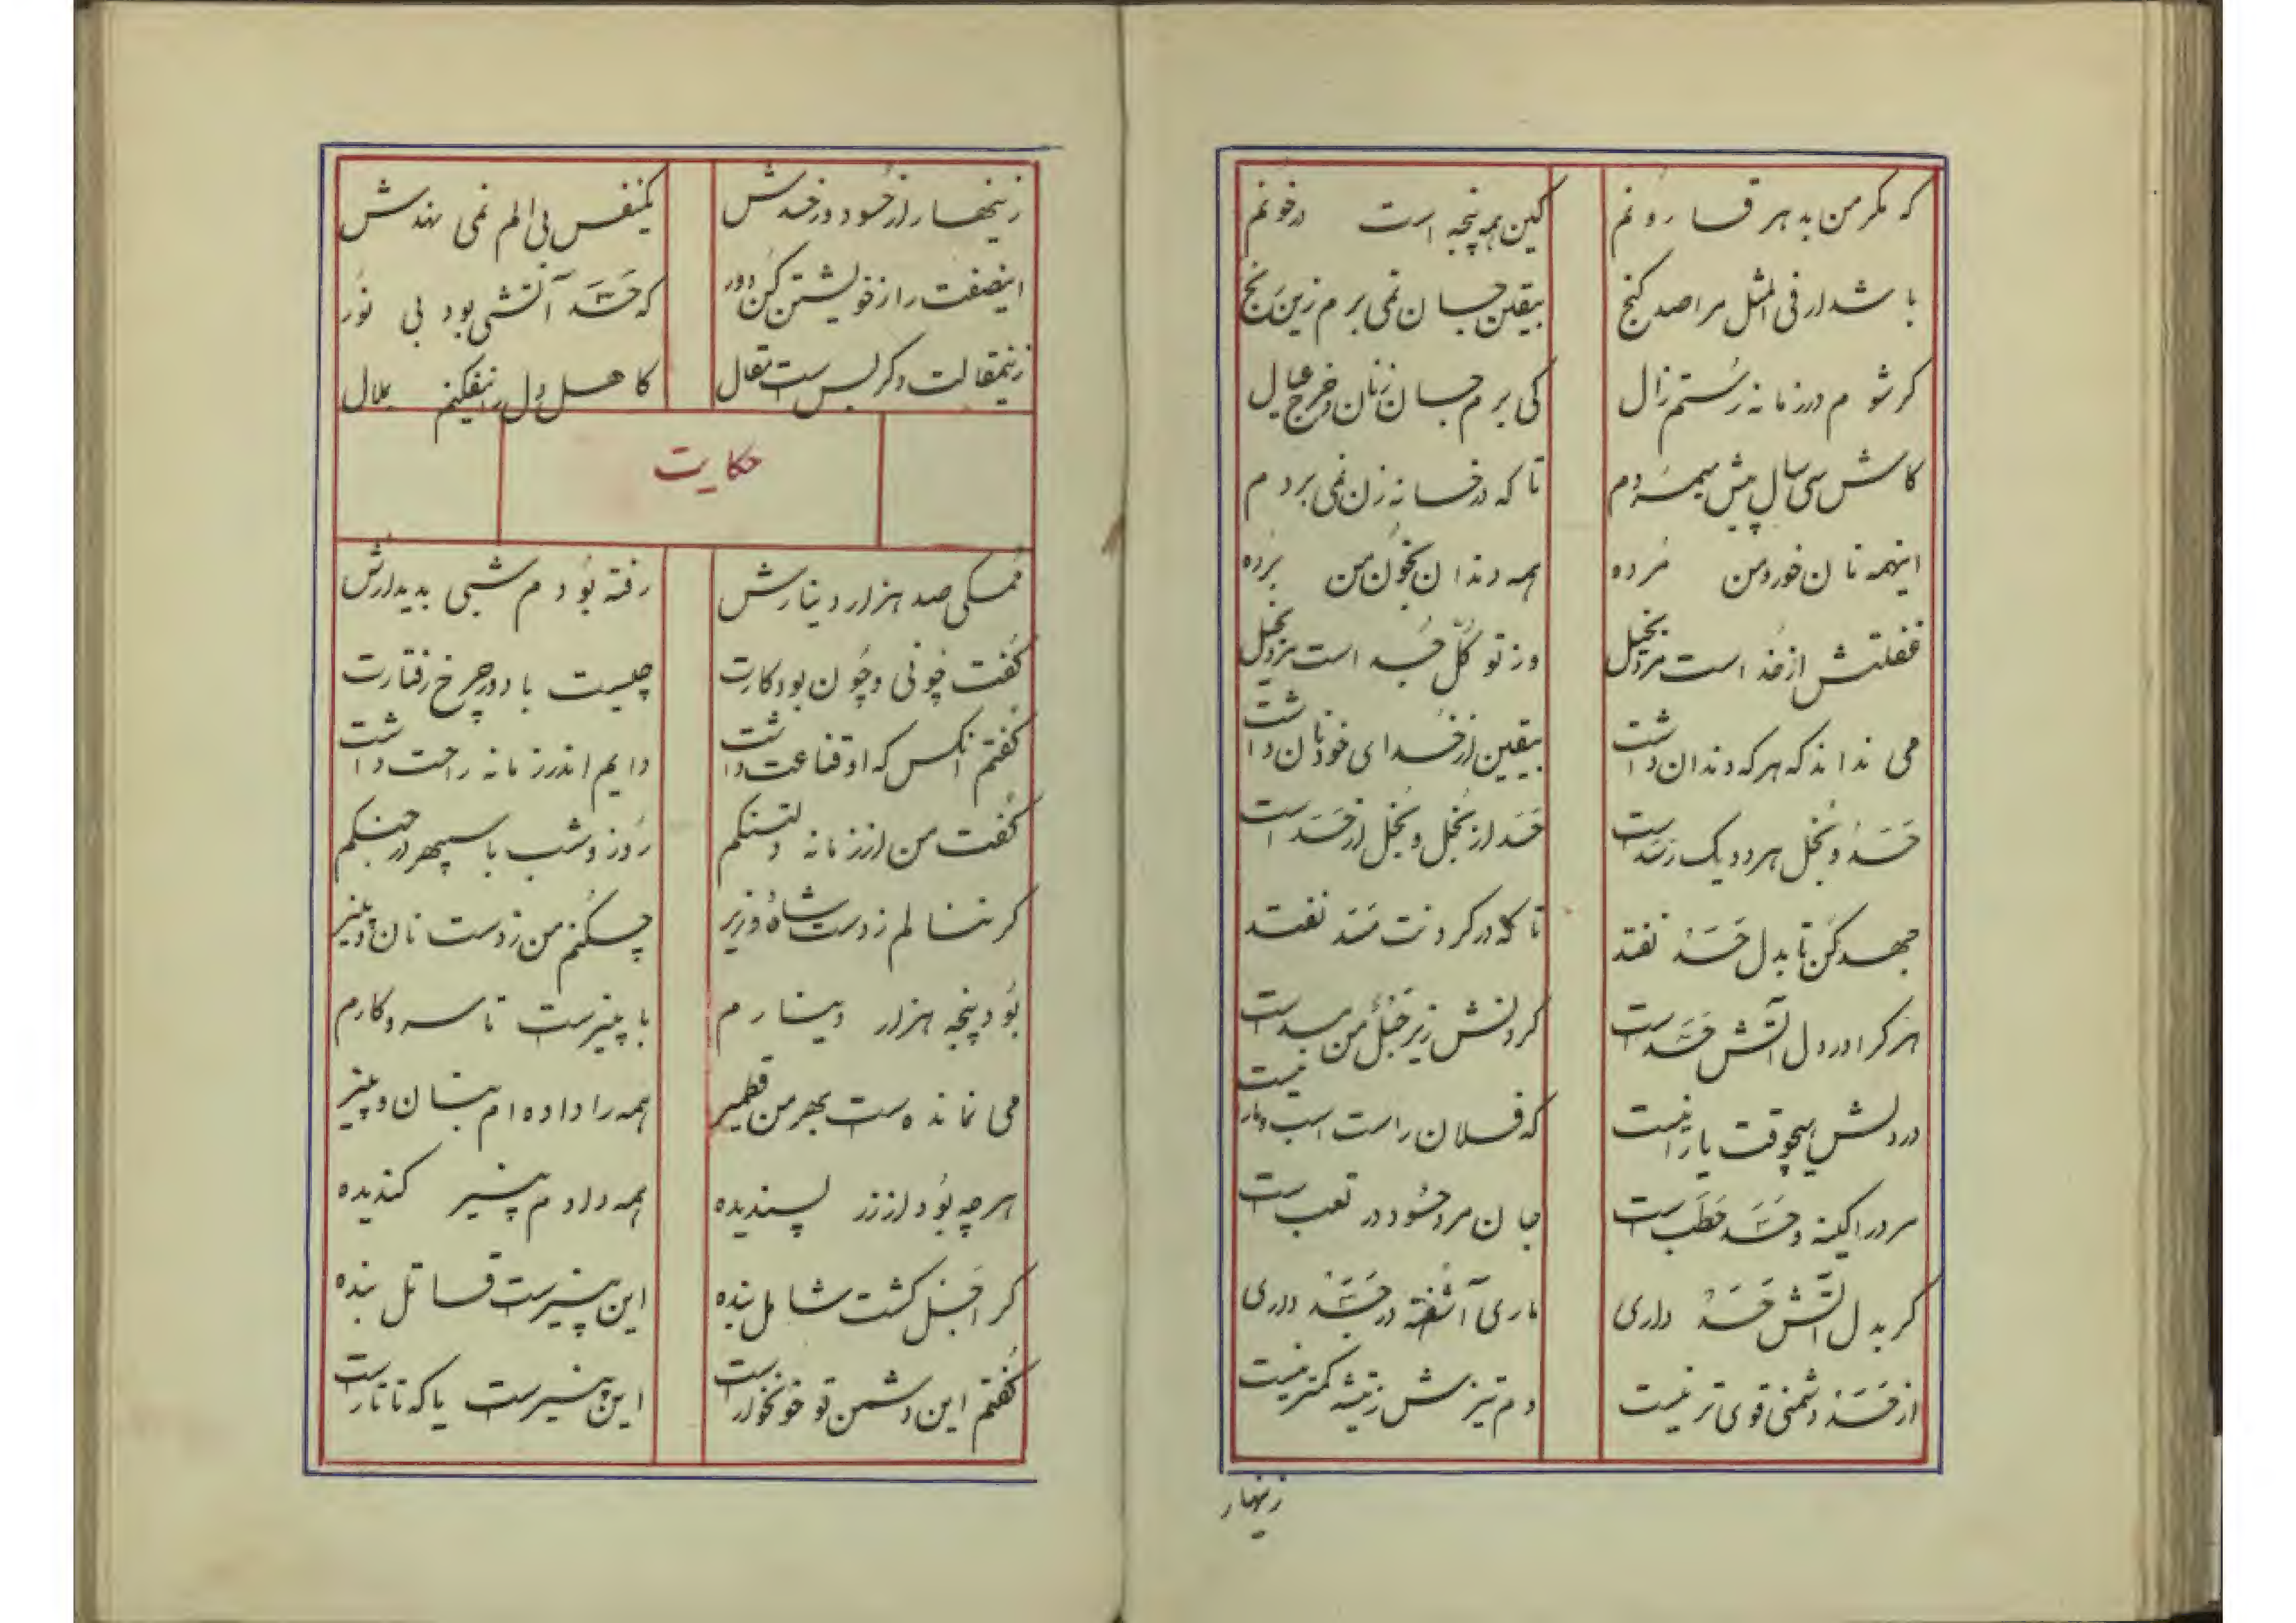 که مکر من به هر قسا رونم کین همه پنجه است در خونم
باشد ار فی المثل مرا صد گنج بیقین جان نمی برم زین رنج
کر شوم در زمانه رستم زال کی برم جان ز نان و خرج عیال
کاش سی سال پیش میمردم تا که در خانه زن نمی بردم
اینهمه نان خور و من مرده همه دندان بخون من برده
غفلتش از خداست مرد بخیل وز توکل جداست مرد بخیل
می نداند که هر که دندان داشت بیقین از خدای خود نان داشت
حسد و بخل هر دو یک رسد است حسد از بخل و بخل از حسد است
جهد کن تا بدل حسد نفتد تا که در کردنت مسد نفتد
هر کرا در دل آتش حسد است کردنش زیر حبل من مسد است
در دلش هیچوقت یارا نیست که فلان راست اسب و ما را نیست
مرد را کینه و حسد حطب است جان مرد حسود در تعب است
کر بدل آتش حسد داری ماری آشفته در جسد داری
از حسد دشمنی قوی تر نیست دم تیزش ز تیشه کمتر نیست
زینهار
زینهار از حسود و از حسدش کمنفس بی الم نمی نهدش
اینصفت را ز خویشتن کن دور که حسد آتشی بود بی نور
زینمقالت دکر بس است مقال کاهل دل را نیفکنم بملال
حکایت
ممسکی صد هزار دینارش رفته بودم شبی بدیدارش
گفت چونی و چون بود کارت چیست با دور چرخ رفتارت
گفتم آنکس که او قناعت داشت دایم اندر زمانه راحت داشت
گفت من از زمانه دلتنکم روز و شب با سپهر در جنکم
کر ننالم ز دست شاه و وزیر چکنم من ز دست نان و پنیر
بود پنجه هزار دینارم با پنیرست تا سر و کارم
می نمانده ست بهر من قطمیر همه را داده ام بنان و پنیر
هر چه بود از زر پسندیده همه دادم پنیر کندیده
کر اجل کشت شامل بنده این پنیرست قاتل بنده
گفتم این دشمن تو خونخوار است این پنیرست یا که تاتار است